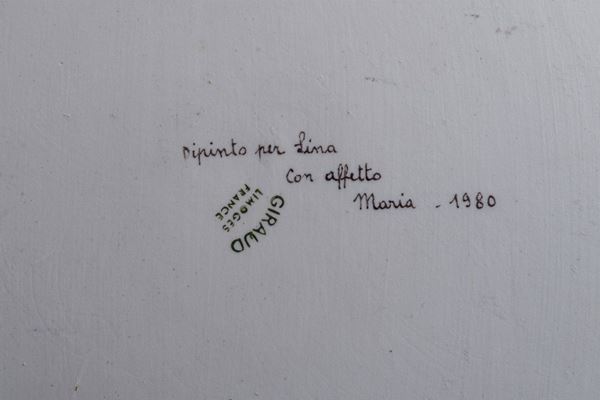 Dipinto per Lina
Con affetto
Maria - 1980
GIRAUD
LIMOGES
FRANCE